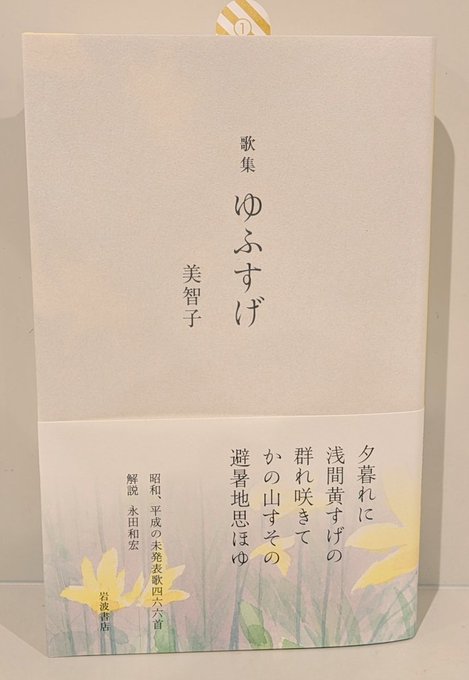 ①
歌集
ゆふすげ
美智子
夕暮れに
浅間黄すげの
群れ咲きて
かの山すその
避暑地思ほゆ
昭和、平成の未発表歌四六六首
解説 永田和宏
岩波書店